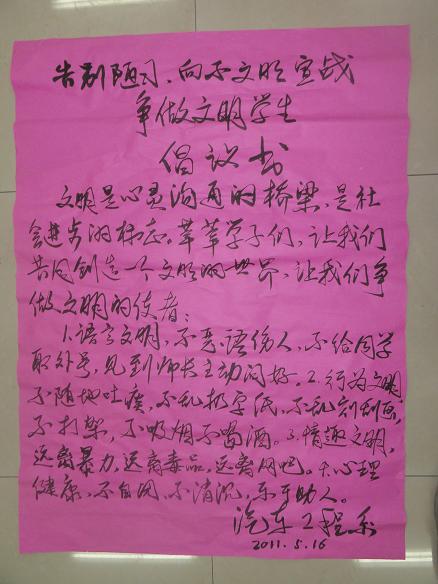 告别陋习，向不文明宣战
争做文明学生
倡议书
文明是心灵沟通的桥梁，是社
会进步的标志。莘莘学子们，让我们
共同创造一个文明的世界，让我们争
做文明的使者：
1.语言文明，不恶语伤人，不给同学
取外号，见到师长主动问好。2.行为文明
不随地吐痰，不乱扔字纸，不乱刻刮画，
不打架，不吸烟不喝酒。3.情趣文明，
远离暴力，远离毒品，远离网吧。4.心理
健康，不自闭，不消沉，乐于助人。
汽车工程系
2011.5.16